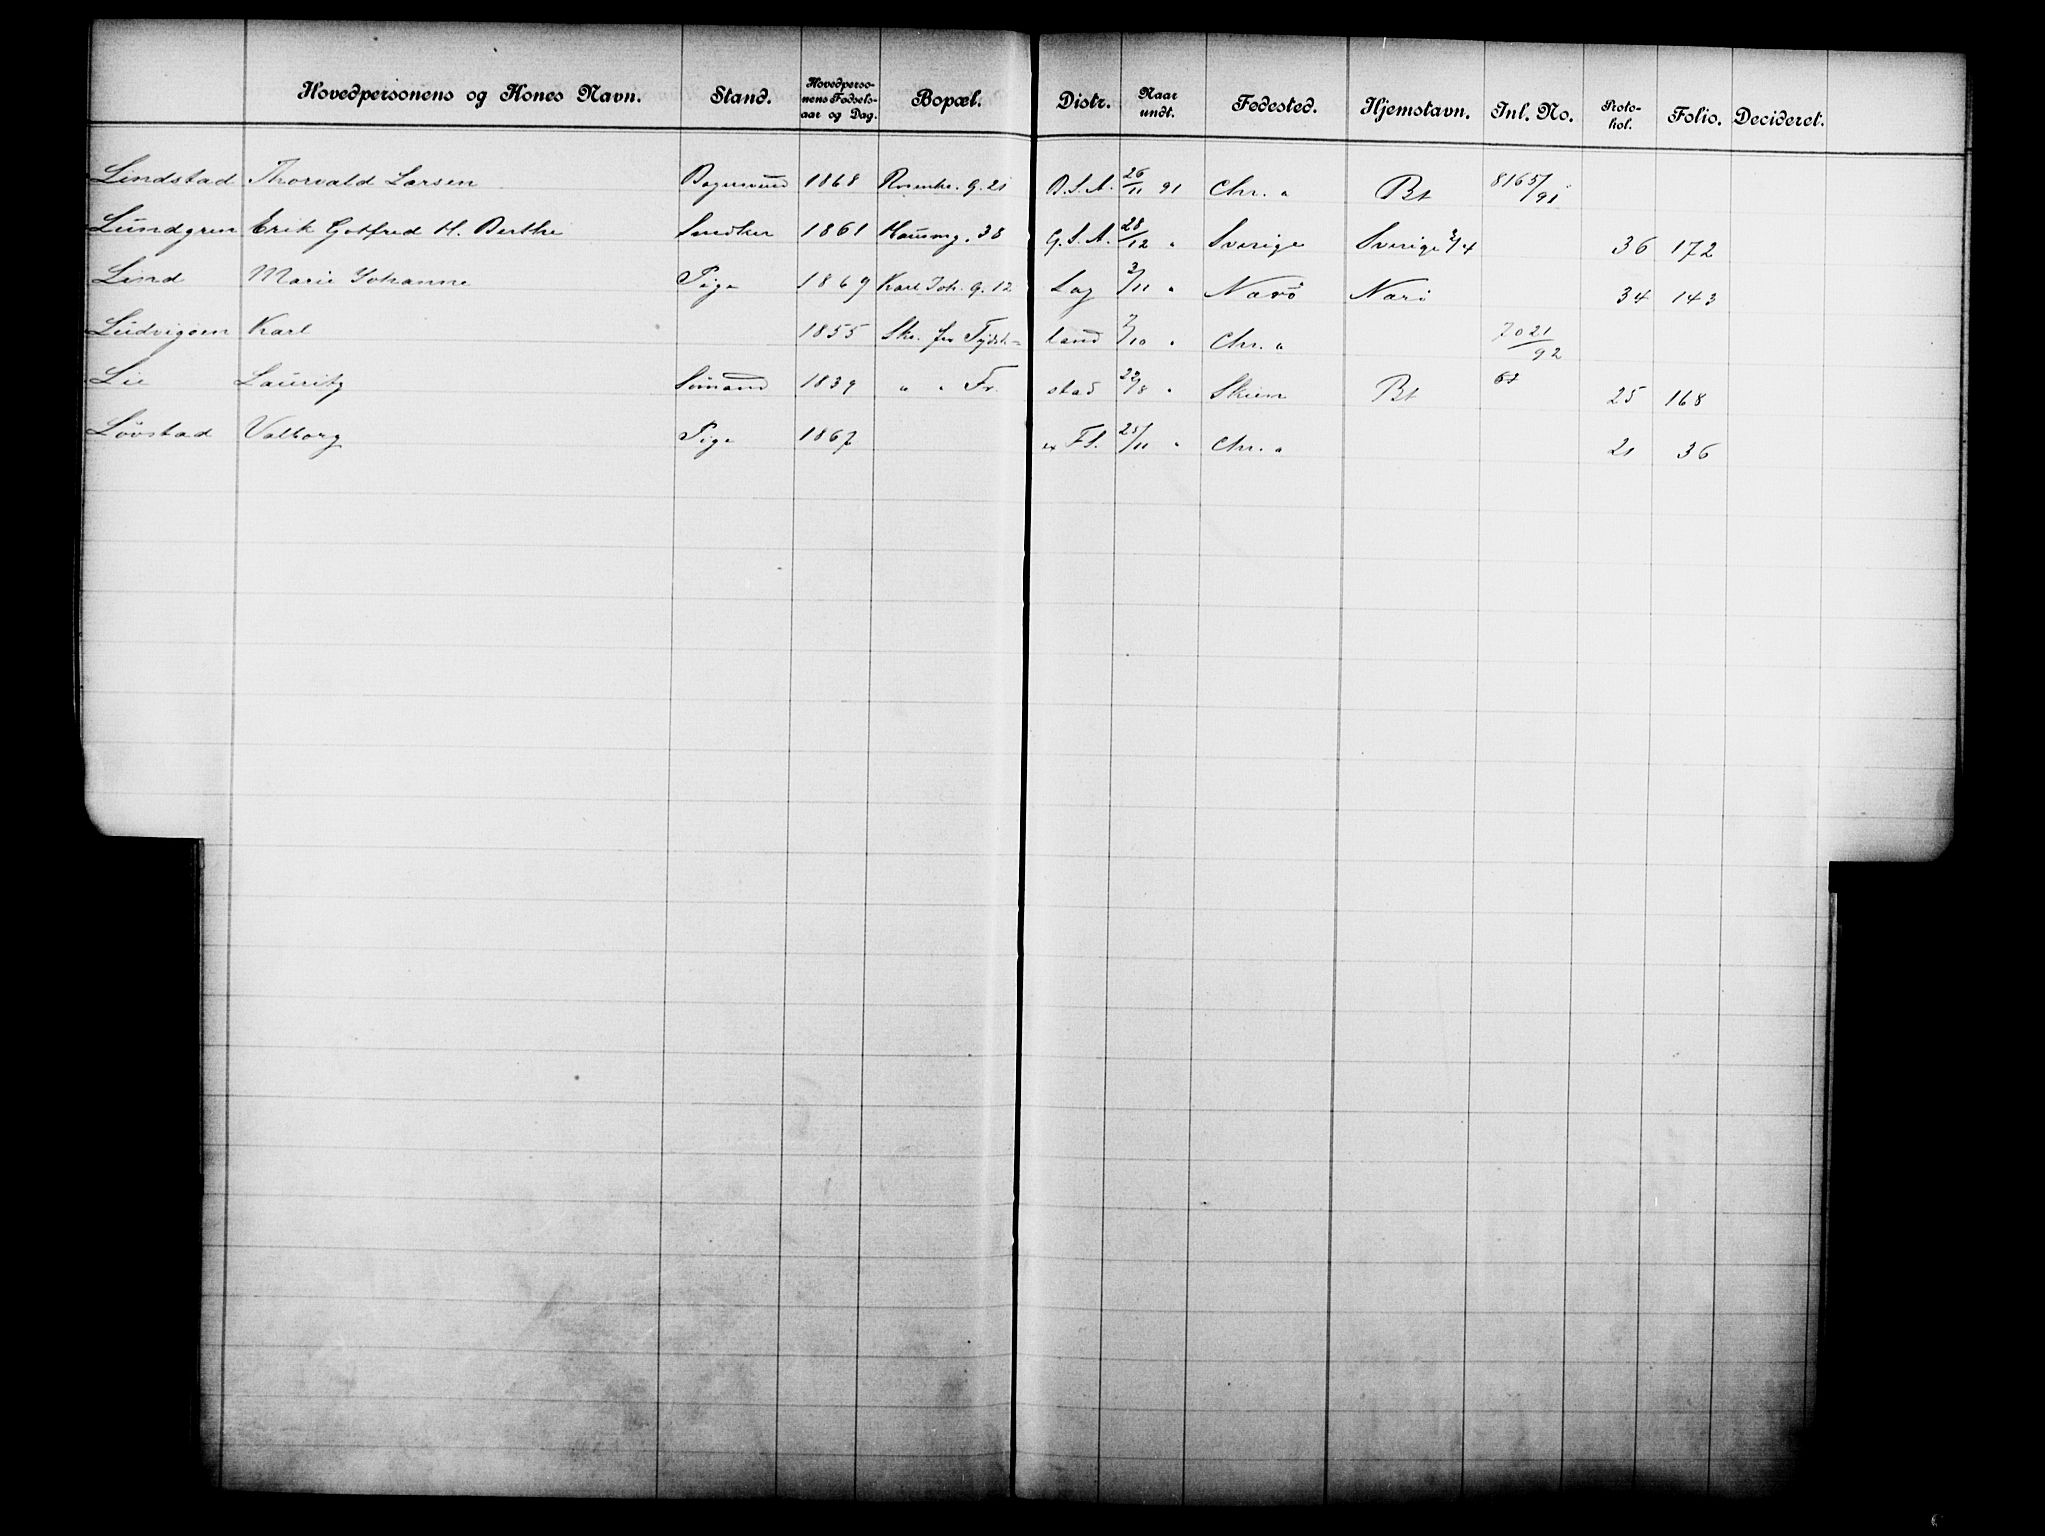 Hovedpersonens og Kones Navn. Stand. Hovedpersonens Fødselsaar og Dag. Bopæl. Distr. Naar undt. Fødested. Hjemstavn. Inl. No. Protokol. Folio. Decideret.
Lindstad Thorvald Larsen 1868 Rosenkr. g. 21 D.S.A. 26/11 91 Chr.a Bt 8165/91
Lundgren Erik Gotfred H. Berthe Snedker 1861 Hausmg. 38 G.S.A. 28/12 " Sverige Sverige 2/4 36 172
Lind Marie Johanne Pige 1869 Karl Joh. g. 12 Lag 3/11 " Nærø Nærö 34 143
Ludvigsen Karl 1855 Skr. fra Tydsk= land 7/10 " Chr.a 7021/92
Lie Lauritz Sömand 1839 " " Fr. stad 22/8 " Skien Bt 67 25 168
Lövstad Valborg Pige 1867 Fl. 25/11 " Chr.a 21 36